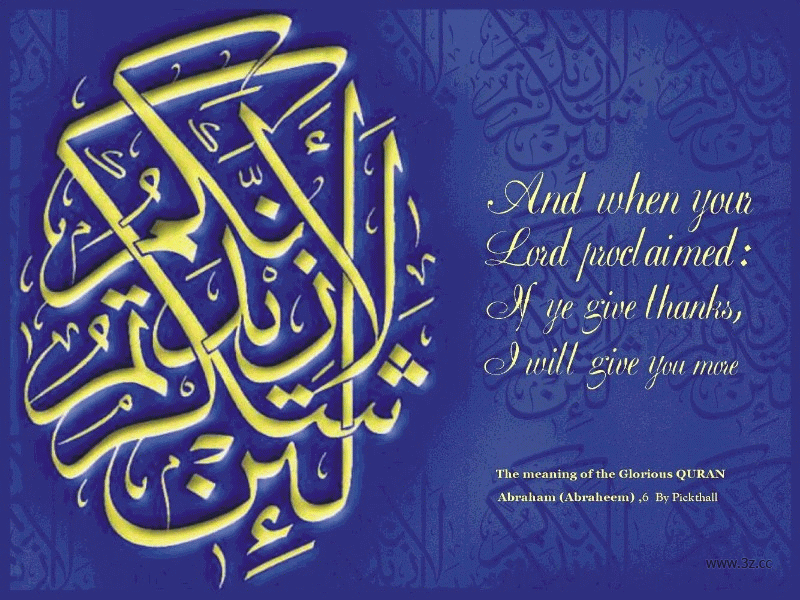 لئن شكرتم لأزيدنكم
And when your
Lord proclaimed:
If ye give thanks,
I will give you more
The meaning of the Glorious QURAN
Abraham (Abraheem) ,6 By Pickthall
www.3z.cc